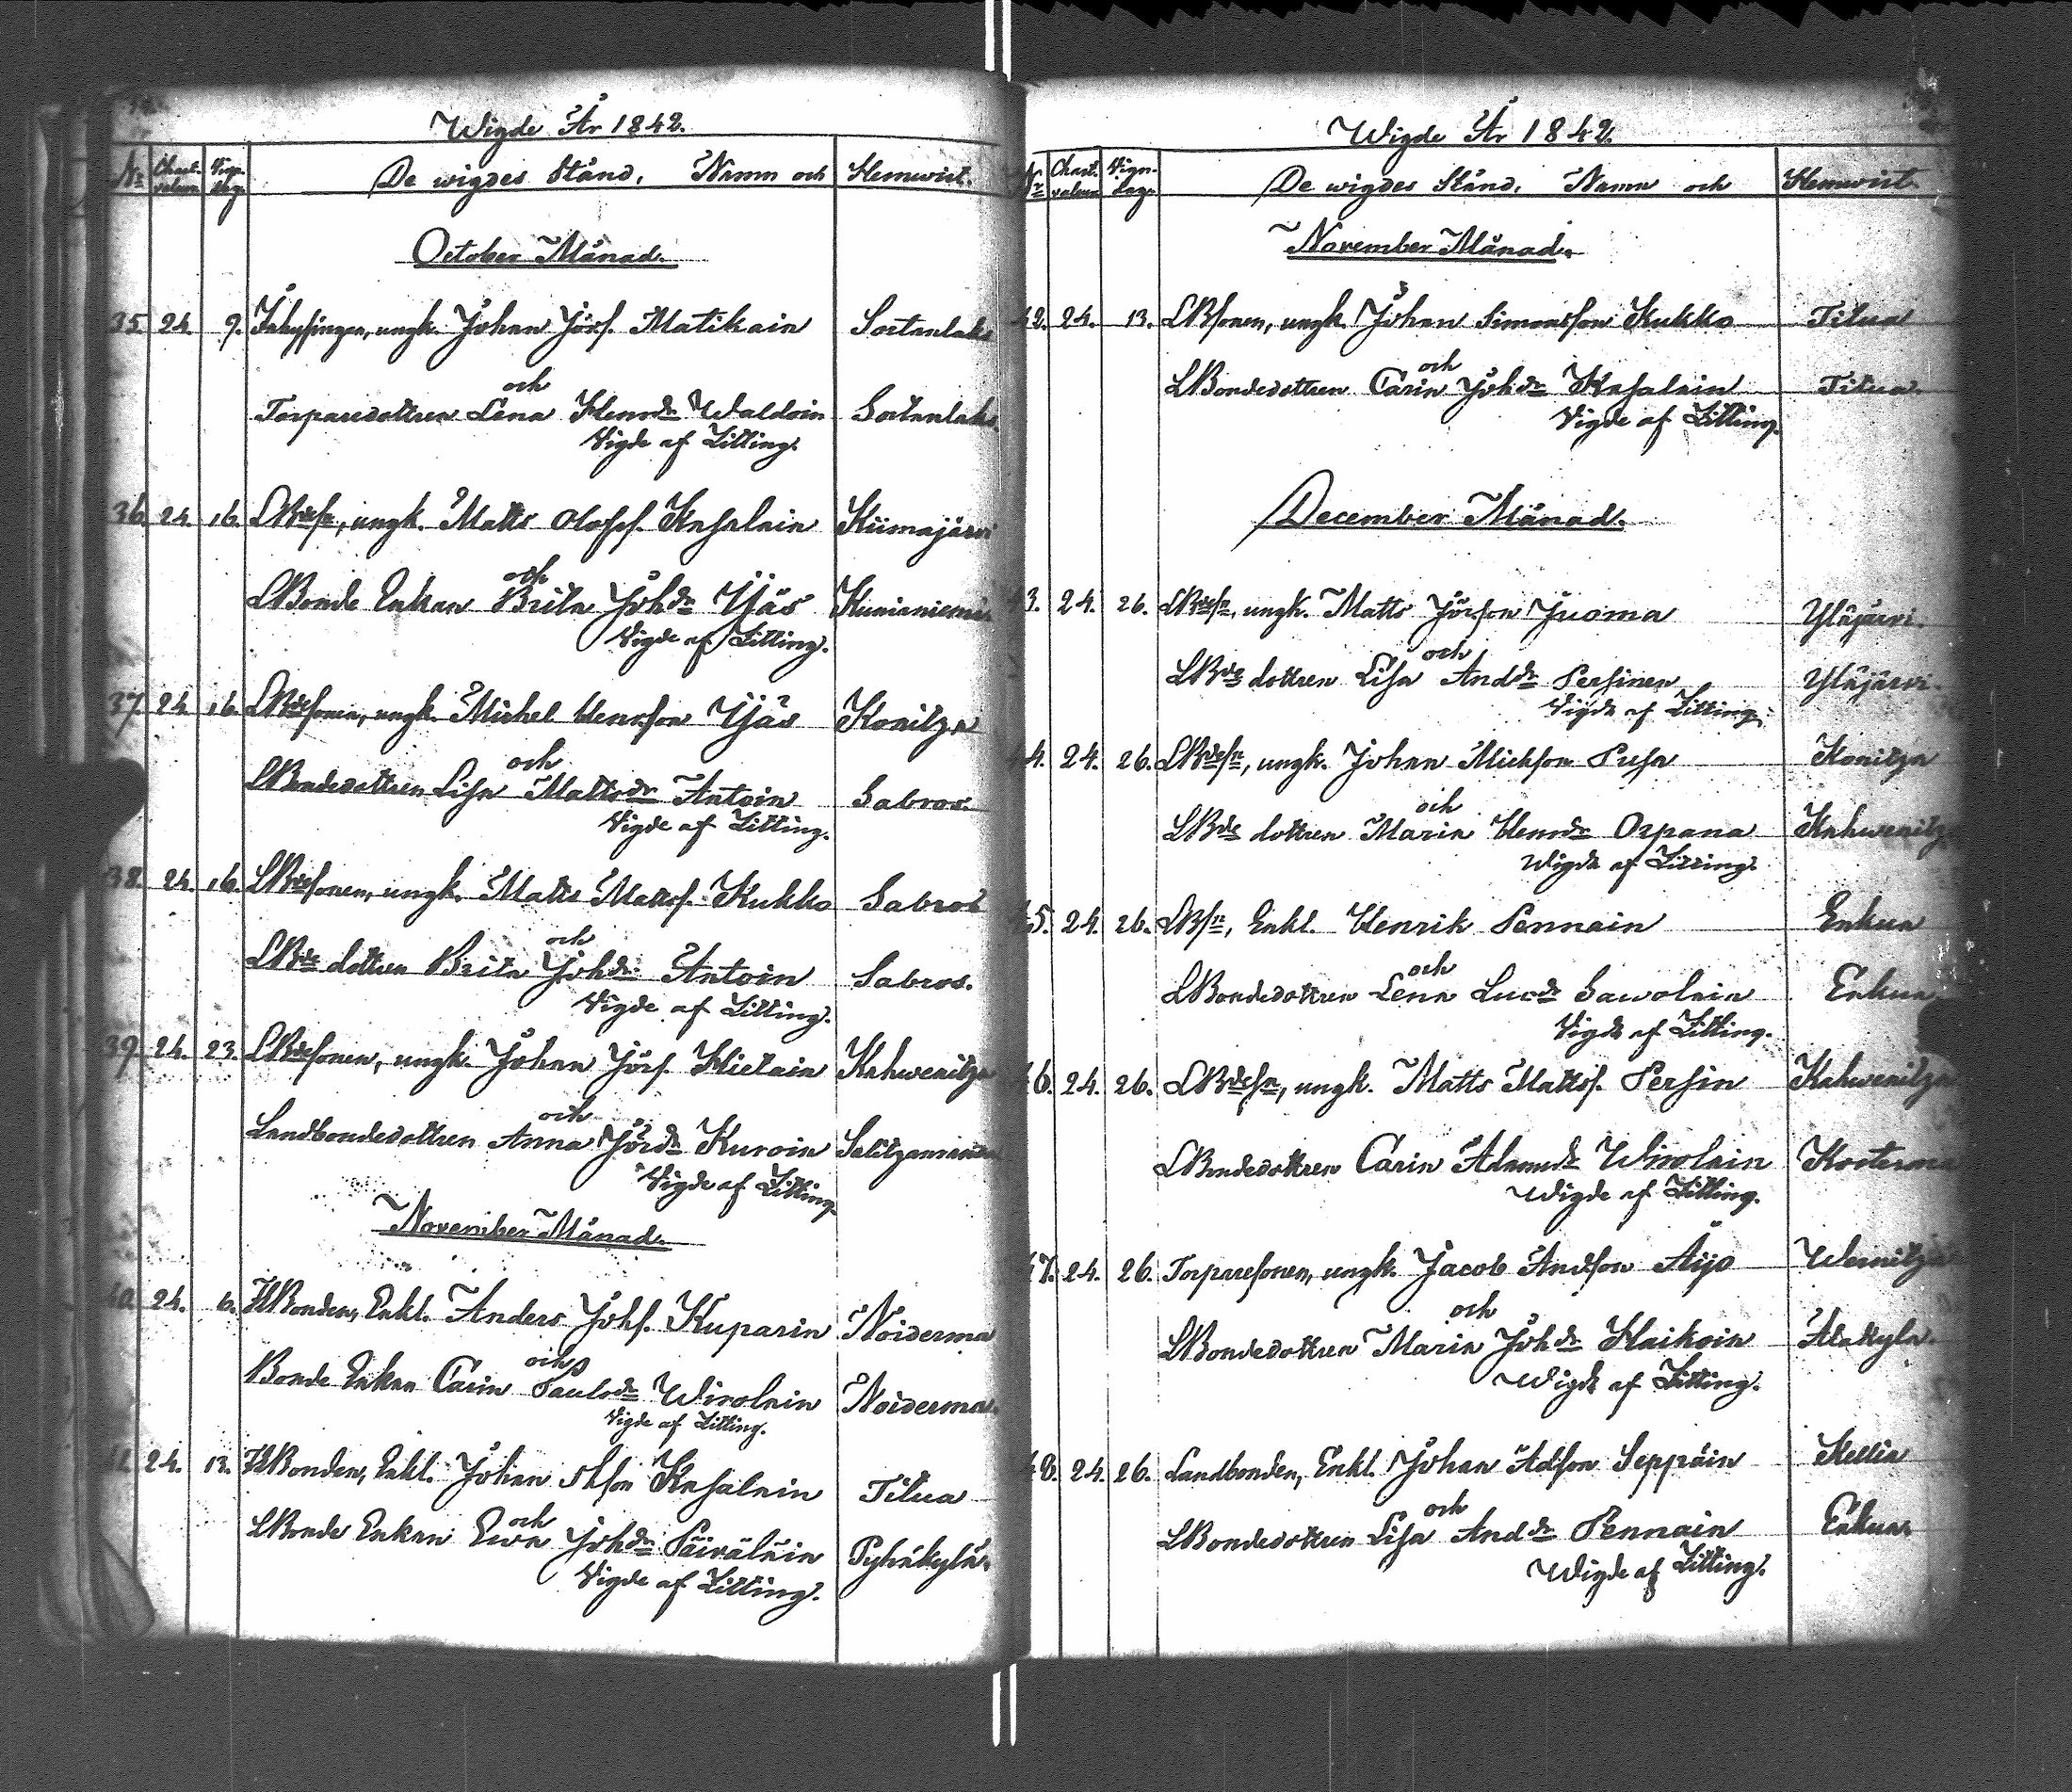 Wigde År 1842.
No Chart. valeur Vign. dag. De wigdes Stånd, Namn och Hemwist.
October Månad.
35. 24. 9. Inhysingen, ungk. Johan Jörs. Matikain Sortanlaks
och
Torparedottren Lena Henrdr Waldoin Sortanlaks.
Vigde af Zitting.
36. 24. 16. LBdesn, ungk. Matts Olofsf. Kasalain Kiimajärvi
och
LBonde Enkan Brita Johdr Ujäs Kunianiemi
Vigde af Zitting.
37. 24. 16. LBdesonen, ungk. Michel Henrsson Ujäs Konitza
och
LBondedottren Lisa Mattsdr Antoin Sabros.
Vigde af Zitting.
38. 24. 16. LBdesonen, ungk. Matts Mattsf. Kukko Sabros
och
LBde dottren Brita Johdr Antoin Sabros.
Vigde af Zitting.
39. 24. 23. LBdesonen, ungk. Johan Jörs. Hietain Kahwenitza
och
Landbondedottren Anna Jördr Kuroin
Vigde af Zitting.
November Månad.
40. 24. 6. HBonden, Enkl. Anders Johs. Kuparin Noiderma
och
Bonde Enkan Carin Paulsdr Wirolain Noiderma.
Vigde af Zitting.
41. 24. 13. HBonden, Enkl. Johan Kasalain Titua
och
LBonde Enkan Ewa Johdr Päiväläin Pyhäkylä.
Vigde af Zitting.
Wigde År 1842.
No Chart. valeur Vign. dag. De wigdes Stånd, Namn och Hemwist.
November Månad.
42. 24. 13. LBsonen, ungk. Johan Simonsson Kukko Titua
och
LBondedottren Carin Johdr Kasalain Titua.
Vigde af Zitting.
December Månad.
43. 24. 26. LBdesn, ungk. Matts Jörsson Juoma Yläjärvi.
och
LBde dottren Lisa Anddr Persinen Yläjärvi.
Vigde af Zitting.
44. 24. 26. LBdesn, ungk. Johan Michson Pusa Konitza
och
LBde dottren Maria Henrdr Orpana Kahwenitza
Wigde af Zitting.
45. 24. 26. LBsn, Enkl. Henrik Pennain Enkua
och
LBondedottren Lena Lucdr Sawolain Enkua
Vigde af Zitting.
46. 24. 26. LBdesn, ungk. Matts Mattsf. Persin Kahwenitza
LBondedottren Carin Adamsdr Wirolain Kosterma
Wigde af Zitting.
47. 24. 26. Torparesonen, ungk. Jacob Andsson Äijö Wernitza
och
LBondedottren Maria Johdr Haikoin Alakylä.
Wigde af Zitting.
48. 24. 26. Landbonden, Enkl. Johan Adsson Seppäin Kellia
och
LBondedottren Lisa Anddr Pennain Enkua
Wigde af Zitting.